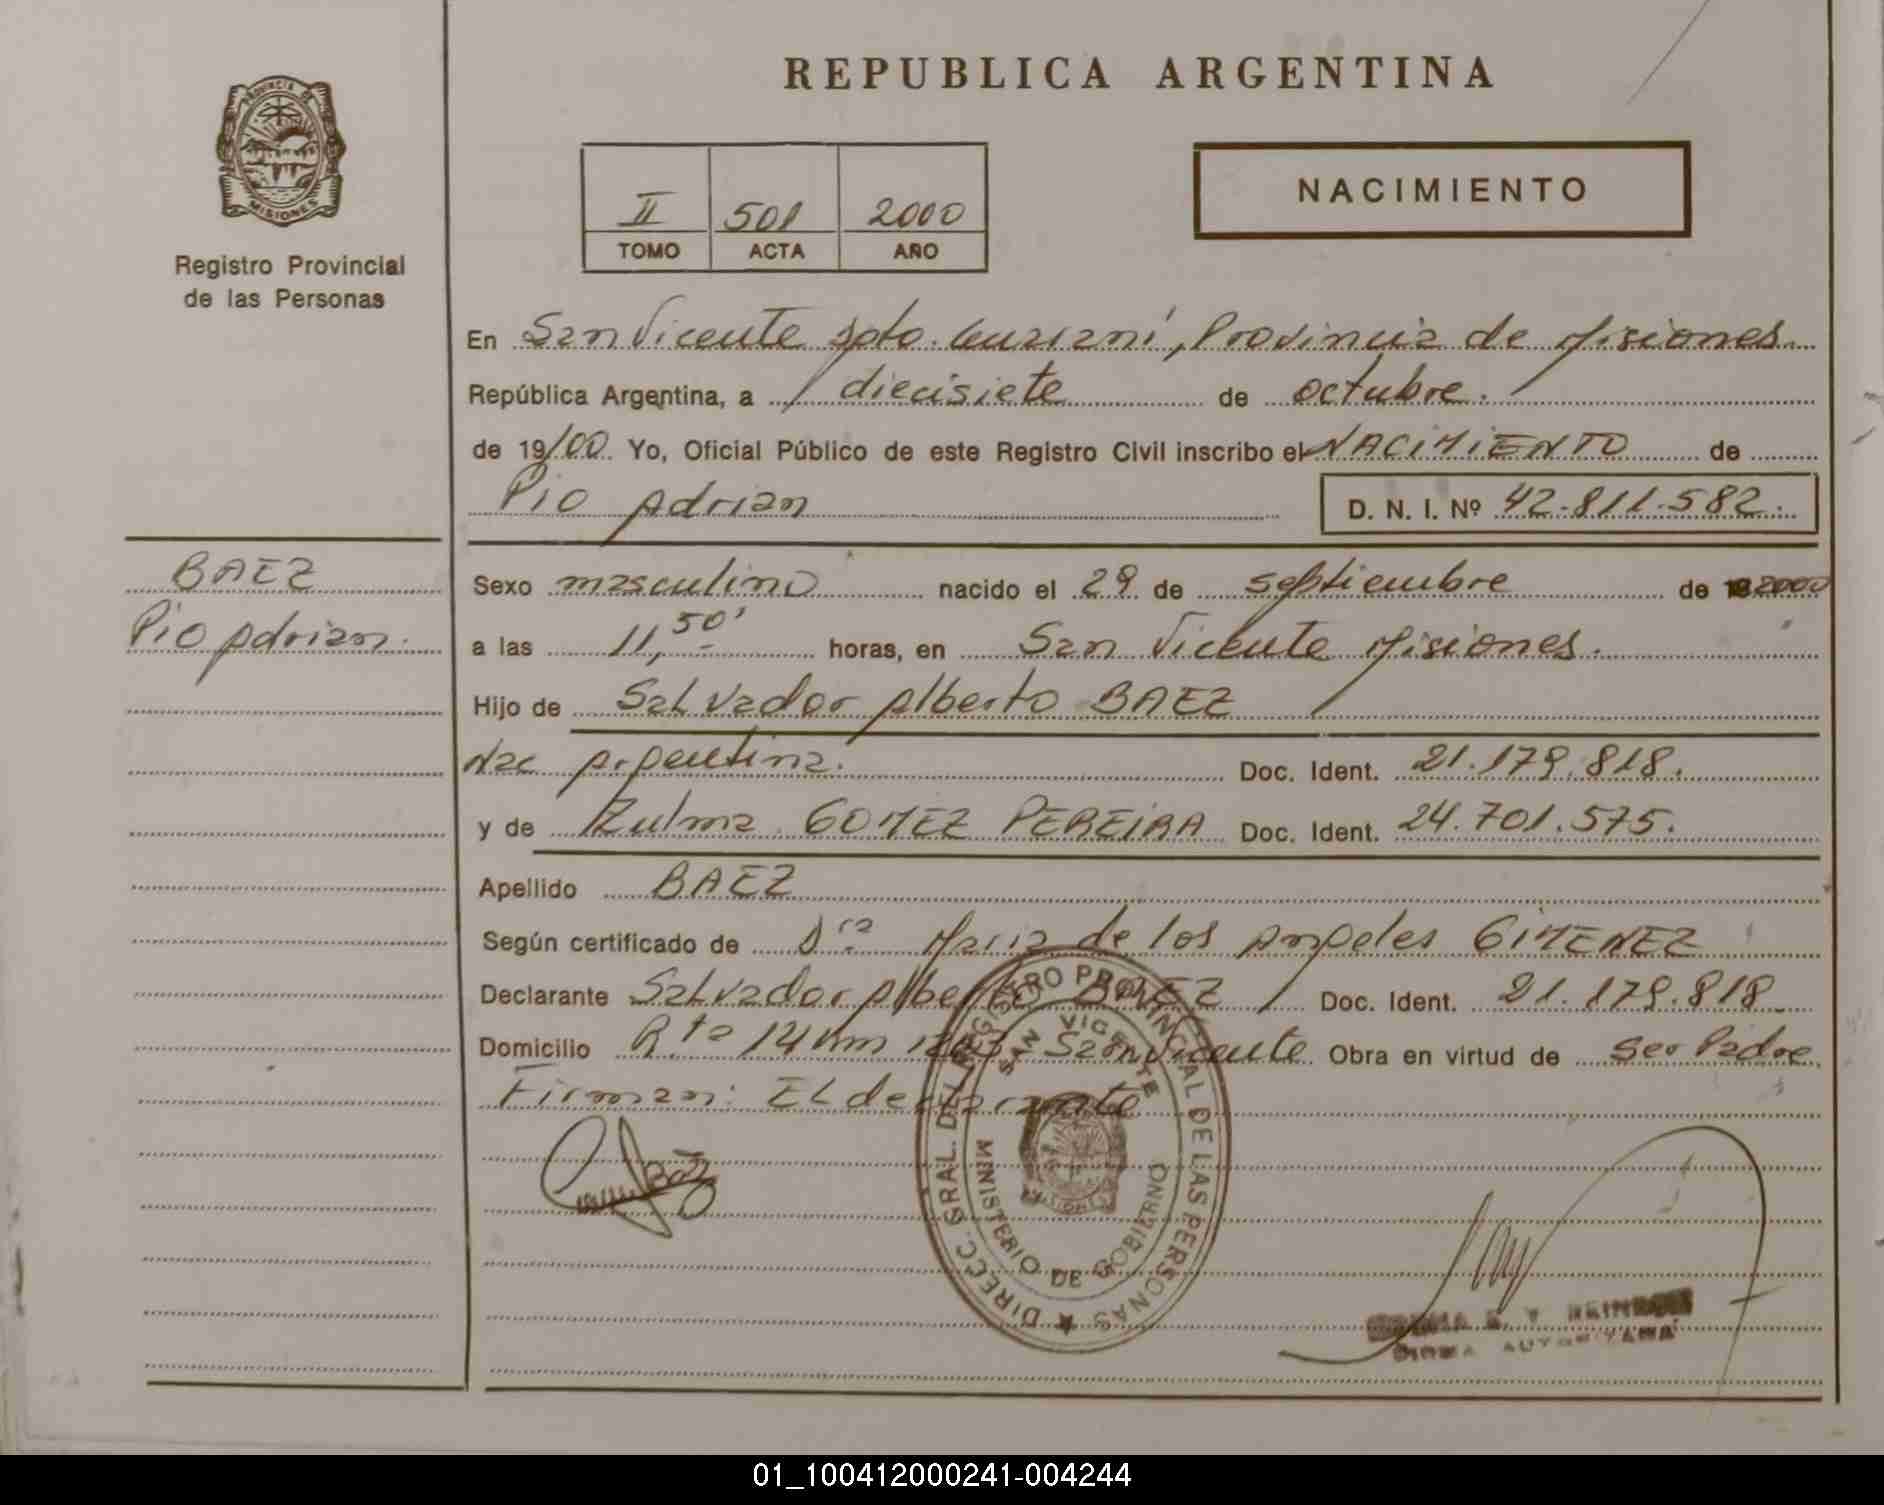 REPUBLICA ARGENTINA
PROVINCIA DE
MISIONES
Registro Provincial
de las Personas
II 501 2000
TOMO ACTA AÑO
NACIMIENTO
En San Vicente Dpto. Guaraní, Provincia de Misiones.
República Argentina, a diecisiete de octubre.
de 19/00. Yo, Oficial Público de este Registro Civil inscribo el NACIMIENTO de
Pio Adrian D. N. I. Nº 42.811.582.
BAEZ
Pio Adrian.
Sexo masculino nacido el 29 de septiembre de 2000
a las 11,50' horas, en San Vicente Misiones.
Hijo de Salvador Alberto BAEZ
Nac Argentina. Doc. Ident. 21.179.818.
y de Zulma GOMEZ PEREIRA Doc. Ident. 24.701.575.
Apellido BAEZ
Según certificado de Dra Maria de los Angeles GIMENEZ
Declarante Salvador Alberto BAEZ Doc. Ident. 21.179.818
Domicilio Rta 14 Km San Vicente Obra en virtud de ser Padre
Firman: El declarante
DIRECC. GRAL. DEL REGISTRO PROVINCIAL DE LAS PERSONAS
SAN VICENTE
MINISTERIO DE GOBIERNO
MISIONES
FIRMA AUTORIZADA
01_100412000241-004244